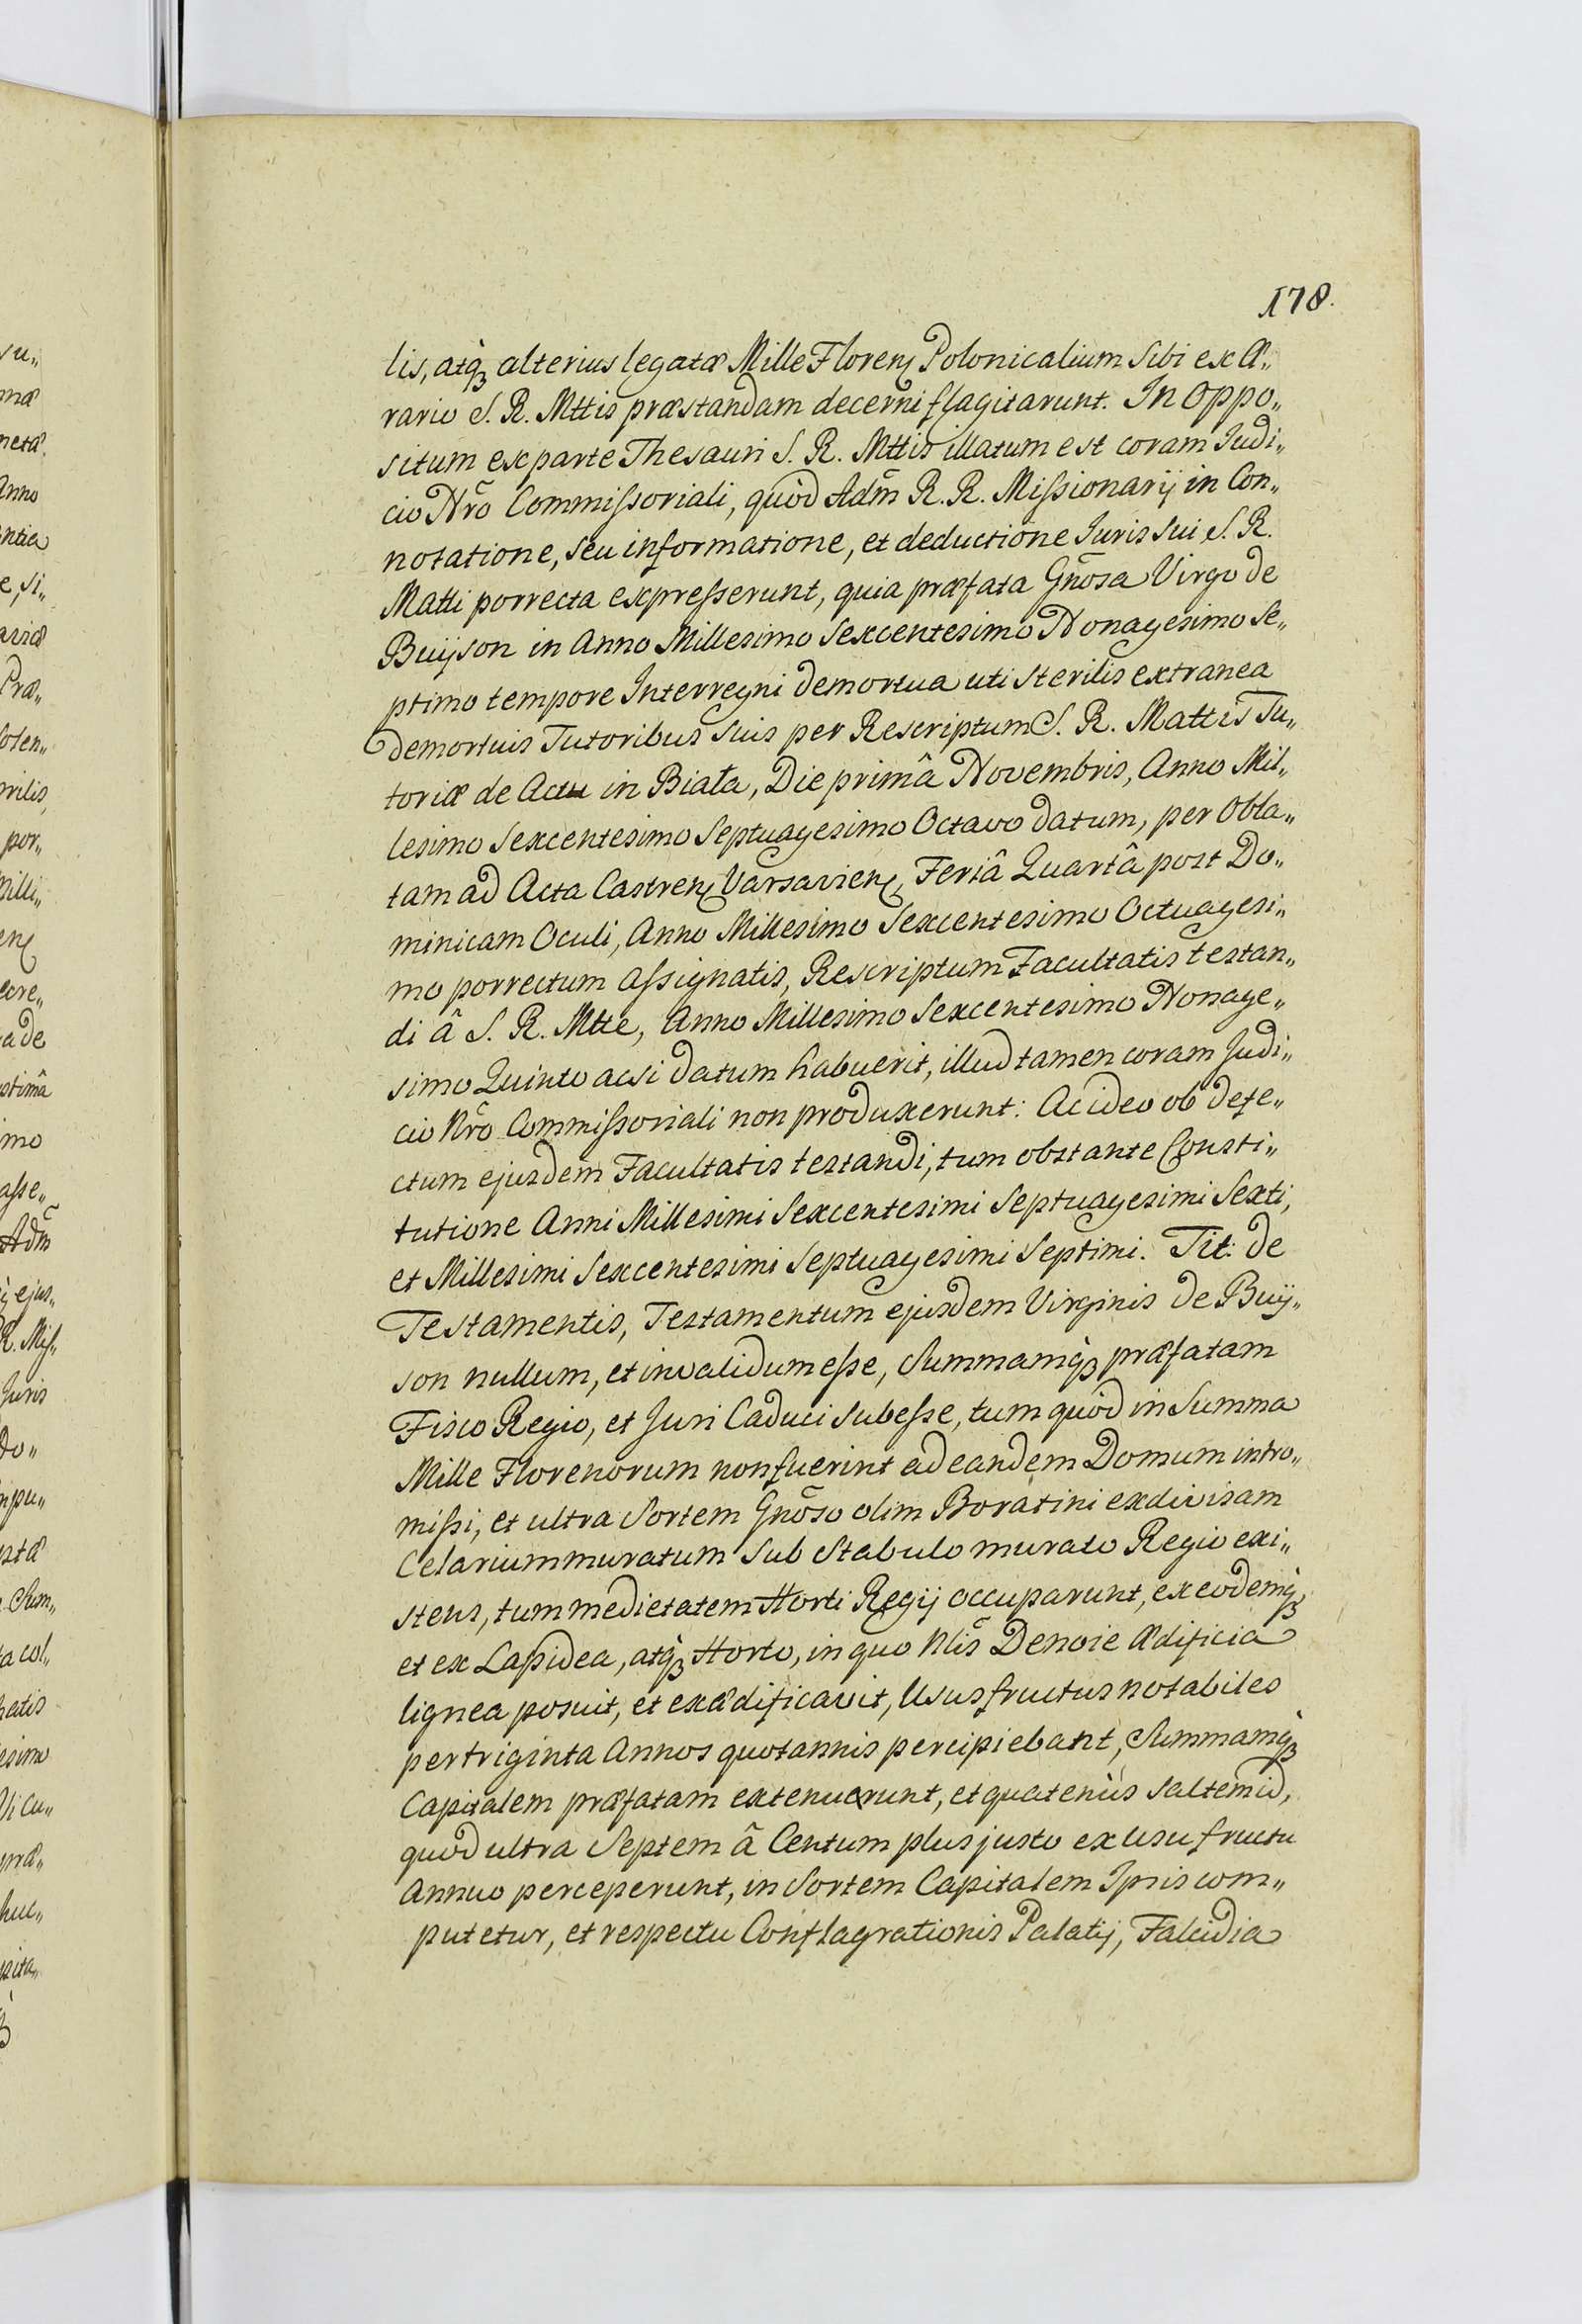 178.
lis, atq́ alterius legatæ Mille Floren Polonicalium Sibi ex Æ„
rario S. R. Mttis præstandam decerni flagitarunt. In Oppo„
situm ex parte Thesauri S. R. Mttis illatum est coram Judi„
cio Nr̃o Commissoriali, quòd Adm̃ R. R. Missionarij in Con„
notatione, seu informatione, et deductione Iuris sui S. R.
Matti porrecta expresserunt, quia præfata Gñosa Virgo de
Buijson in Anno Millesimo Sexcentesimo Nonagesimo Se„
ptimo tempore Interregni demortua uti sterilis extranea
demortuis Tutoribus suis per Rescriptum S. R. Mattis Tu„
toriæ de Actu in Biała, Die primâ Novembris, Anno Mil„
lesimo Sexcentesimo Septuagesimo Octavo datum, per Obla„
tam ad Acta Castren Varsavien, Feriâ Quartâ post Do„
minicam Oculi, Anno Millesimo Sexcentesimo Octuagesi„
mo porrectum assignatis, Rescriptum Facultatis testan„
di â S. R. Mtte, Anno Millesimo Sexcentesimo Nonage„
simo Quinto acsi datum habuerit, illud tamen coram Judi„
cio Nr̃o Commissoriali non produxerunt: Ac ideo ob defe„
ctum ejusdem Facultatis testandi, tum obstante Consti„
tutione Anni Millesimi Sexcentesimi Septuagesimi Sexti,
et Millesimi Sexcentesimi Septuagesimi Septimi. Tit: de
Testamentis, Testamentum ejusdem Virginis de Buij„
son nullum, et invalidum esse, Summamq́ præfatam
Fisco Regio, et Juri Caduci subesse, tum quòd in Summa
Mille Florenorum non fuerint ad eandem Domum intro„
missi, et ultra Sortem Gñoso olim Boratini exdivisam
Celarium muratum sub Stabulo murato Regio exi„
stens, tum medietatem Horti Regij occuparunt, ex eodemq́
et ex Lapidea, atq́ Horto, in quo Nl̃is Denoie Ædificia
lignea posuit, et exædificavit, Ususfructus notabiles
per triginta Annos quotannis percipiebant, Summamq́
Capitalem præfatam extenuerunt, et quatenùs saltem id,
quod ultra Septem â Centum plus justo ex usufructu
Annuo perceperunt, in Sortem Capitalem Ipsis com„
putetur, et respectu Conflagrationis Palatij, Falcidia